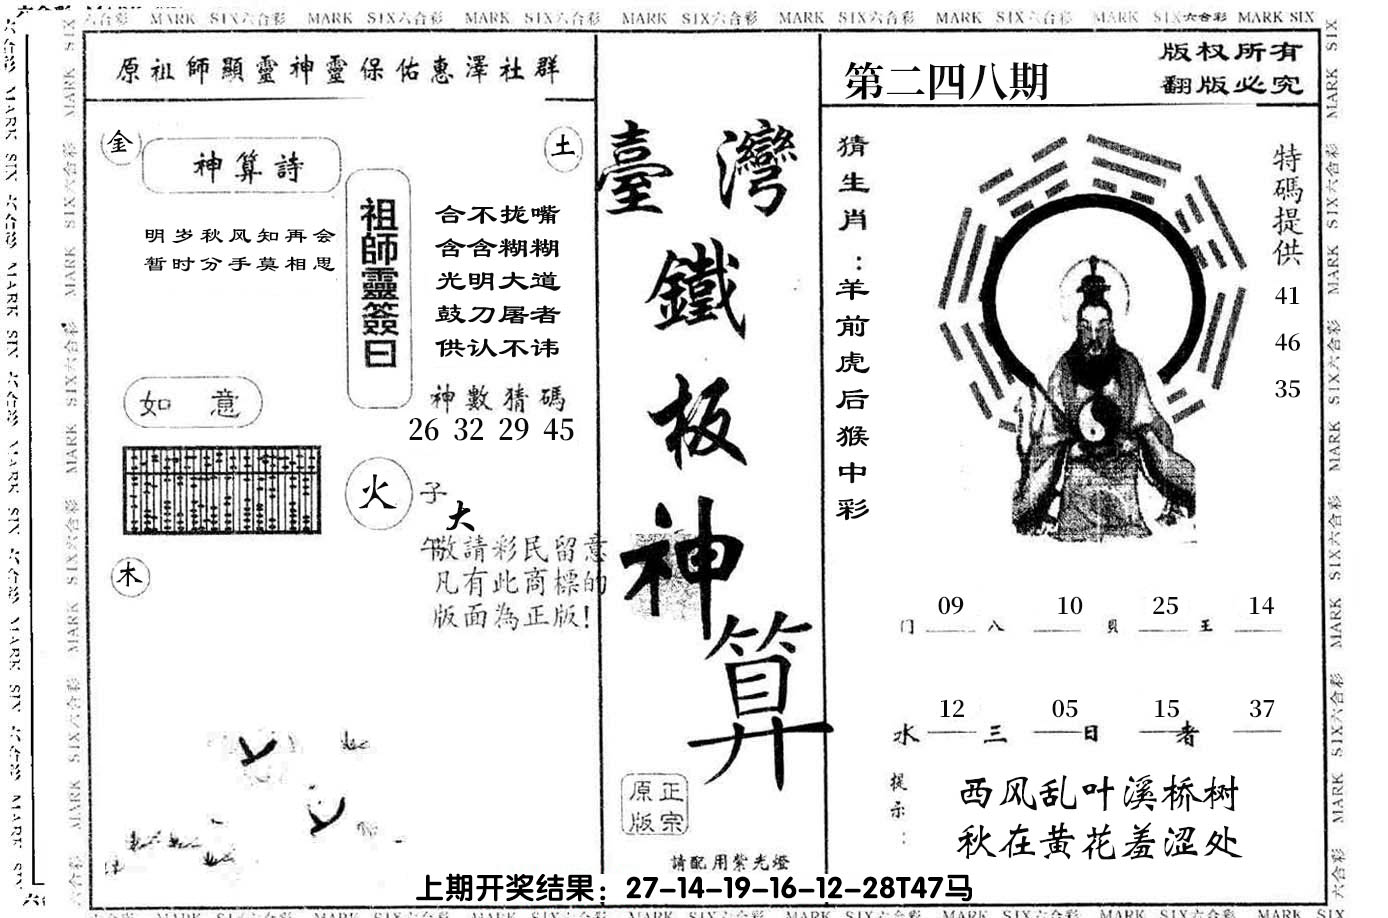 MARK SIX六合彩 MARK SIX六合彩 MARK SIX六合彩 MARK SIX六合彩 MARK SIX六合彩 MARK SIX六合彩 MARK SIX六合彩 MARK SIX
原祖師顯靈神靈保佑惠澤社群
金
神算詩
土
明岁秋风知再会
暂时分手莫相思
祖師靈簽曰
合不拢嘴
含含糊糊
光明大道
鼓刀屠者
供认不讳
神數猜碼
26 32 29 45
如意
火
子
大
午
敬請彩民留意
凡有此商標的
版面為正版!
木
臺灣
鐵
板
神
算
正宗
原版
請配用紫光燈
第二四八期
版权所有
翻版必究
猜生肖:羊前虎后猴中彩
特碼提供
41
46
35
09 10 25 14
门 八 貝 王
12 05 15 37
水 三 日 者
提示:
西风乱叶溪桥树
秋在黄花羞涩处
上期开奖结果：27-14-19-16-12-28T47马